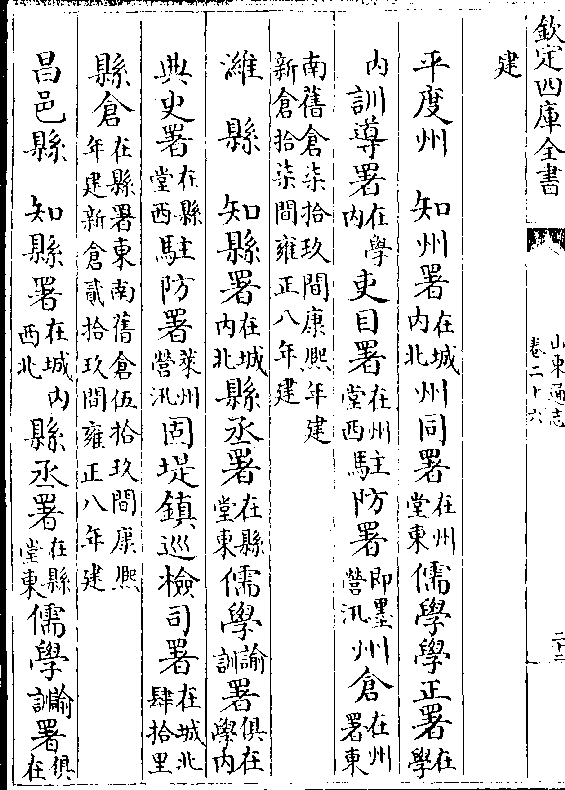 欽定四庫全書
山東通志
卷二十六
二十二
建
平度州　知州署在城內北州同署在州堂東儒學學正署在學
內訓導署在學內吏目署在州堂西駐防署即墨營汛州倉在州署東
南舊倉柒拾玖間康熙年建新倉拾柒間雍正八年建
濰縣　知縣署在城內北縣丞署在縣堂東儒學諭訓署俱在學內
典史署在縣堂西駐防署萊州營汛固堤鎮巡檢司署在城北肆拾里
縣倉在縣署東南舊倉伍拾玖間康熙年建新倉貳拾玖間雍正八年建
昌邑縣　知縣署在城內西北縣丞署在縣堂東儒學諭訓署俱在